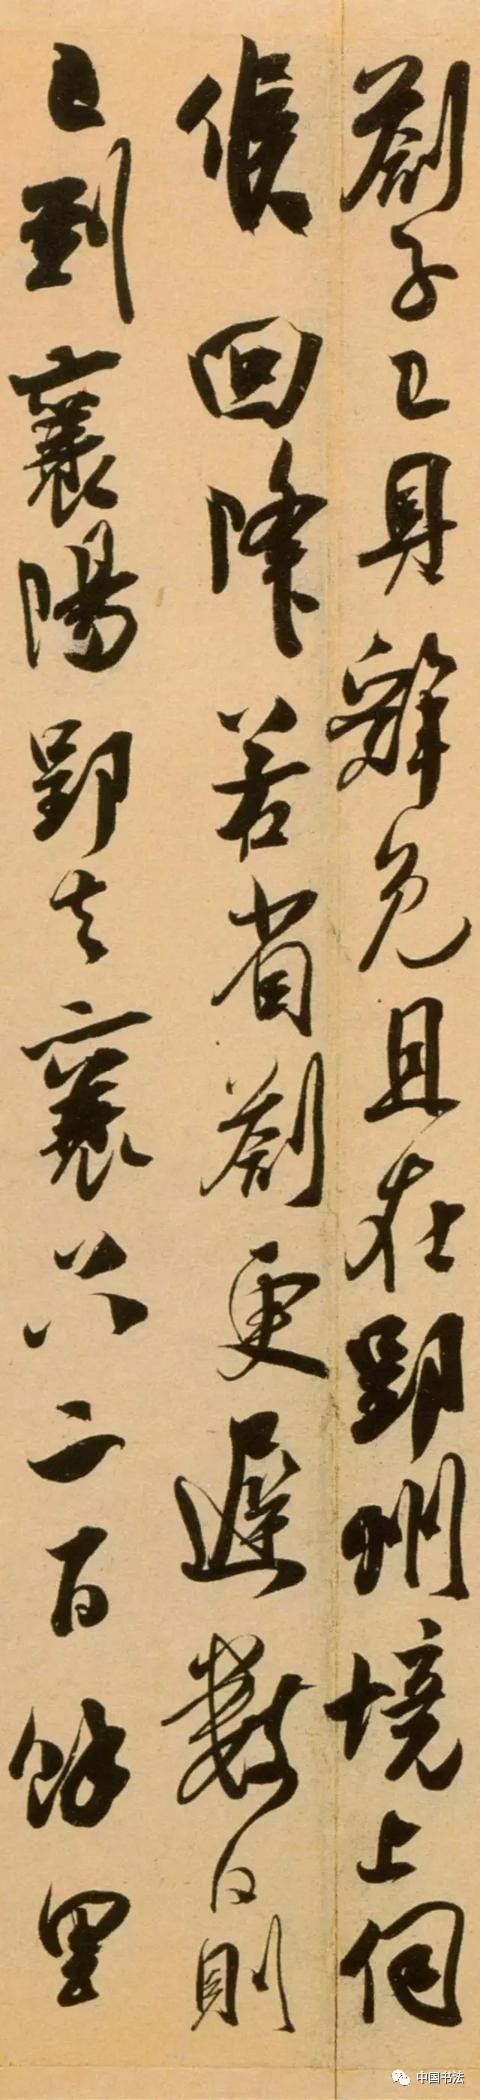 劄子已具辞免且在郢州境上伺
候回降若省劄更遲數日則
已到襄陽郢去襄只二百餘里
中国书法